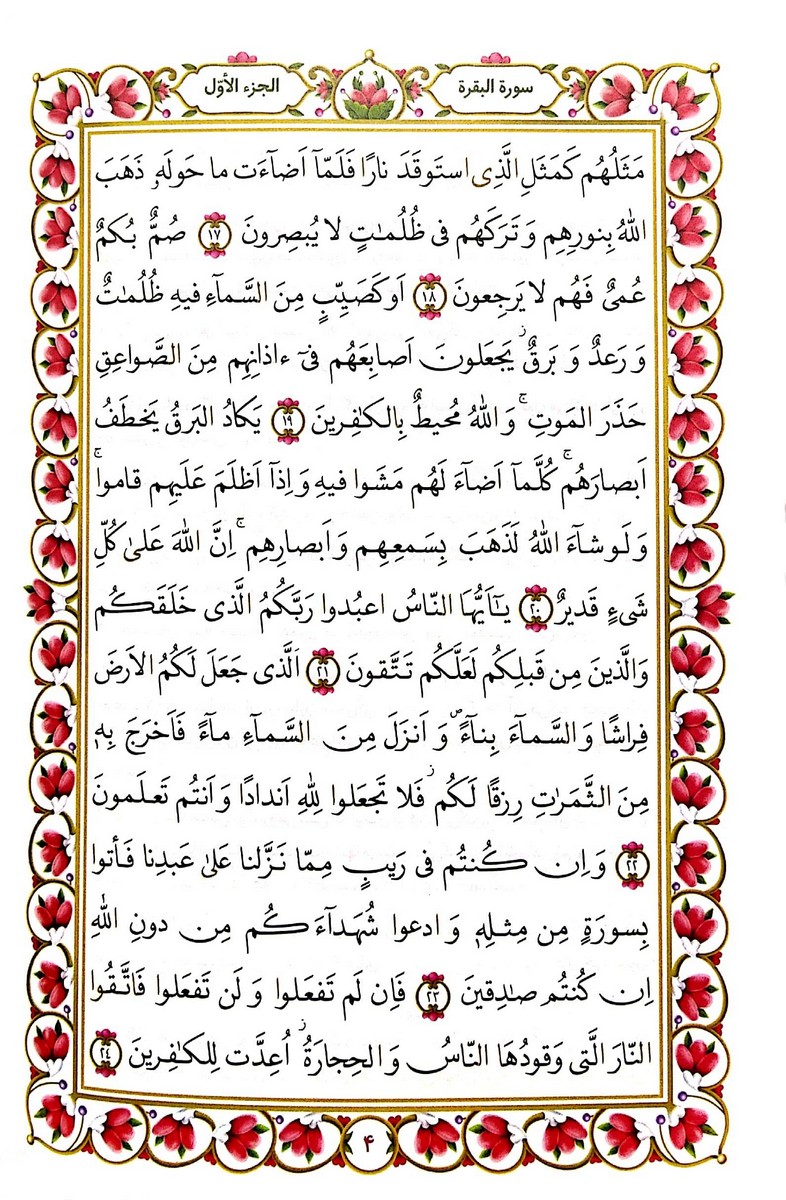 سورة البقرة
الجزء الأوّل
مَثَلُهُم كَمَثَلِ الَّذِی استَوقَدَ نارًا فَلَمّآ اَضآءَت ما حَولَهۥ ذَهَبَ
اللهُ بِنورِهِم وَ تَرَكَهُم فی ظُلُمٰتٍ لا یُبصِرونَ ﴿١٧﴾ صُمٌّ بُكمٌ
عُمیٌ فَهُم لا یَرجِعونَ ﴿١٨﴾ اَو كَصَیِّبٍ مِنَ السَّمآءِ فیهِ ظُلُمٰتٌ
وَ رَعدٌ وَ بَرقٌ ۫ یَجعَلونَ اَصابِعَهُم فیٓ ءاذانِهِم مِنَ الصَّواعِقِ
حَذَرَ المَوتِ ۚ وَ اللهُ مُحیطٌ بِالكٰفِرینَ ﴿١٩﴾ یَكادُ البَرقُ یَخطَفُ
اَبصارَهُم ۚ كُلَّمآ اَضآءَ لَهُم مَشَوا فیهِ وَ اِذآ اَظلَمَ عَلَیهِم قاموا ۚ
وَ لَو شآءَ اللهُ لَذَهَبَ بِسَمعِهِم وَ اَبصارِهِم ۚ اِنَّ اللهَ عَلیٰ كُلِّ
شَیءٍ قَدیرٌ ﴿٢٠﴾ یٰٓاَیُّهَا النّاسُ اعبُدوا رَبَّكُمُ الَّذی خَلَقَكُم
وَالَّذینَ مِن قَبلِكُم لَعَلَّكُم تَتَّقونَ ﴿٢١﴾ اَلَّذی جَعَلَ لَكُمُ الاَرضَ
فِراشًا وَ السَّمآءَ بِنآءً ۖ وَ اَنزَلَ مِنَ السَّمآءِ مآءً فَاَخرَجَ بِهۦ
مِنَ الثَّمَرٰتِ رِزقًا لَكُم ۫ فَلا تَجعَلوا لِلّٰهِ اَندادًا وَ اَنتُم تَعلَمونَ
﴿٢٢﴾ وَ اِن كُنتُم فی رَیبٍ مِمّا نَزَّلنا عَلیٰ عَبدِنا فَأتوا
بِسورَةٍ مِن مِثلِهۦ وَ ادعوا شُهَدآءَكُم مِن دونِ اللهِ
اِن كُنتُم صٰدِقینَ ﴿٢٣﴾ فَاِن لَم تَفعَلوا وَ لَن تَفعَلوا فَاتَّقُوا
النّارَ الَّتی وَقودُهَا النّاسُ وَ الحِجارَةُ ۫ اُعِدَّت لِلكٰفِرینَ ﴿٢٤﴾
۴